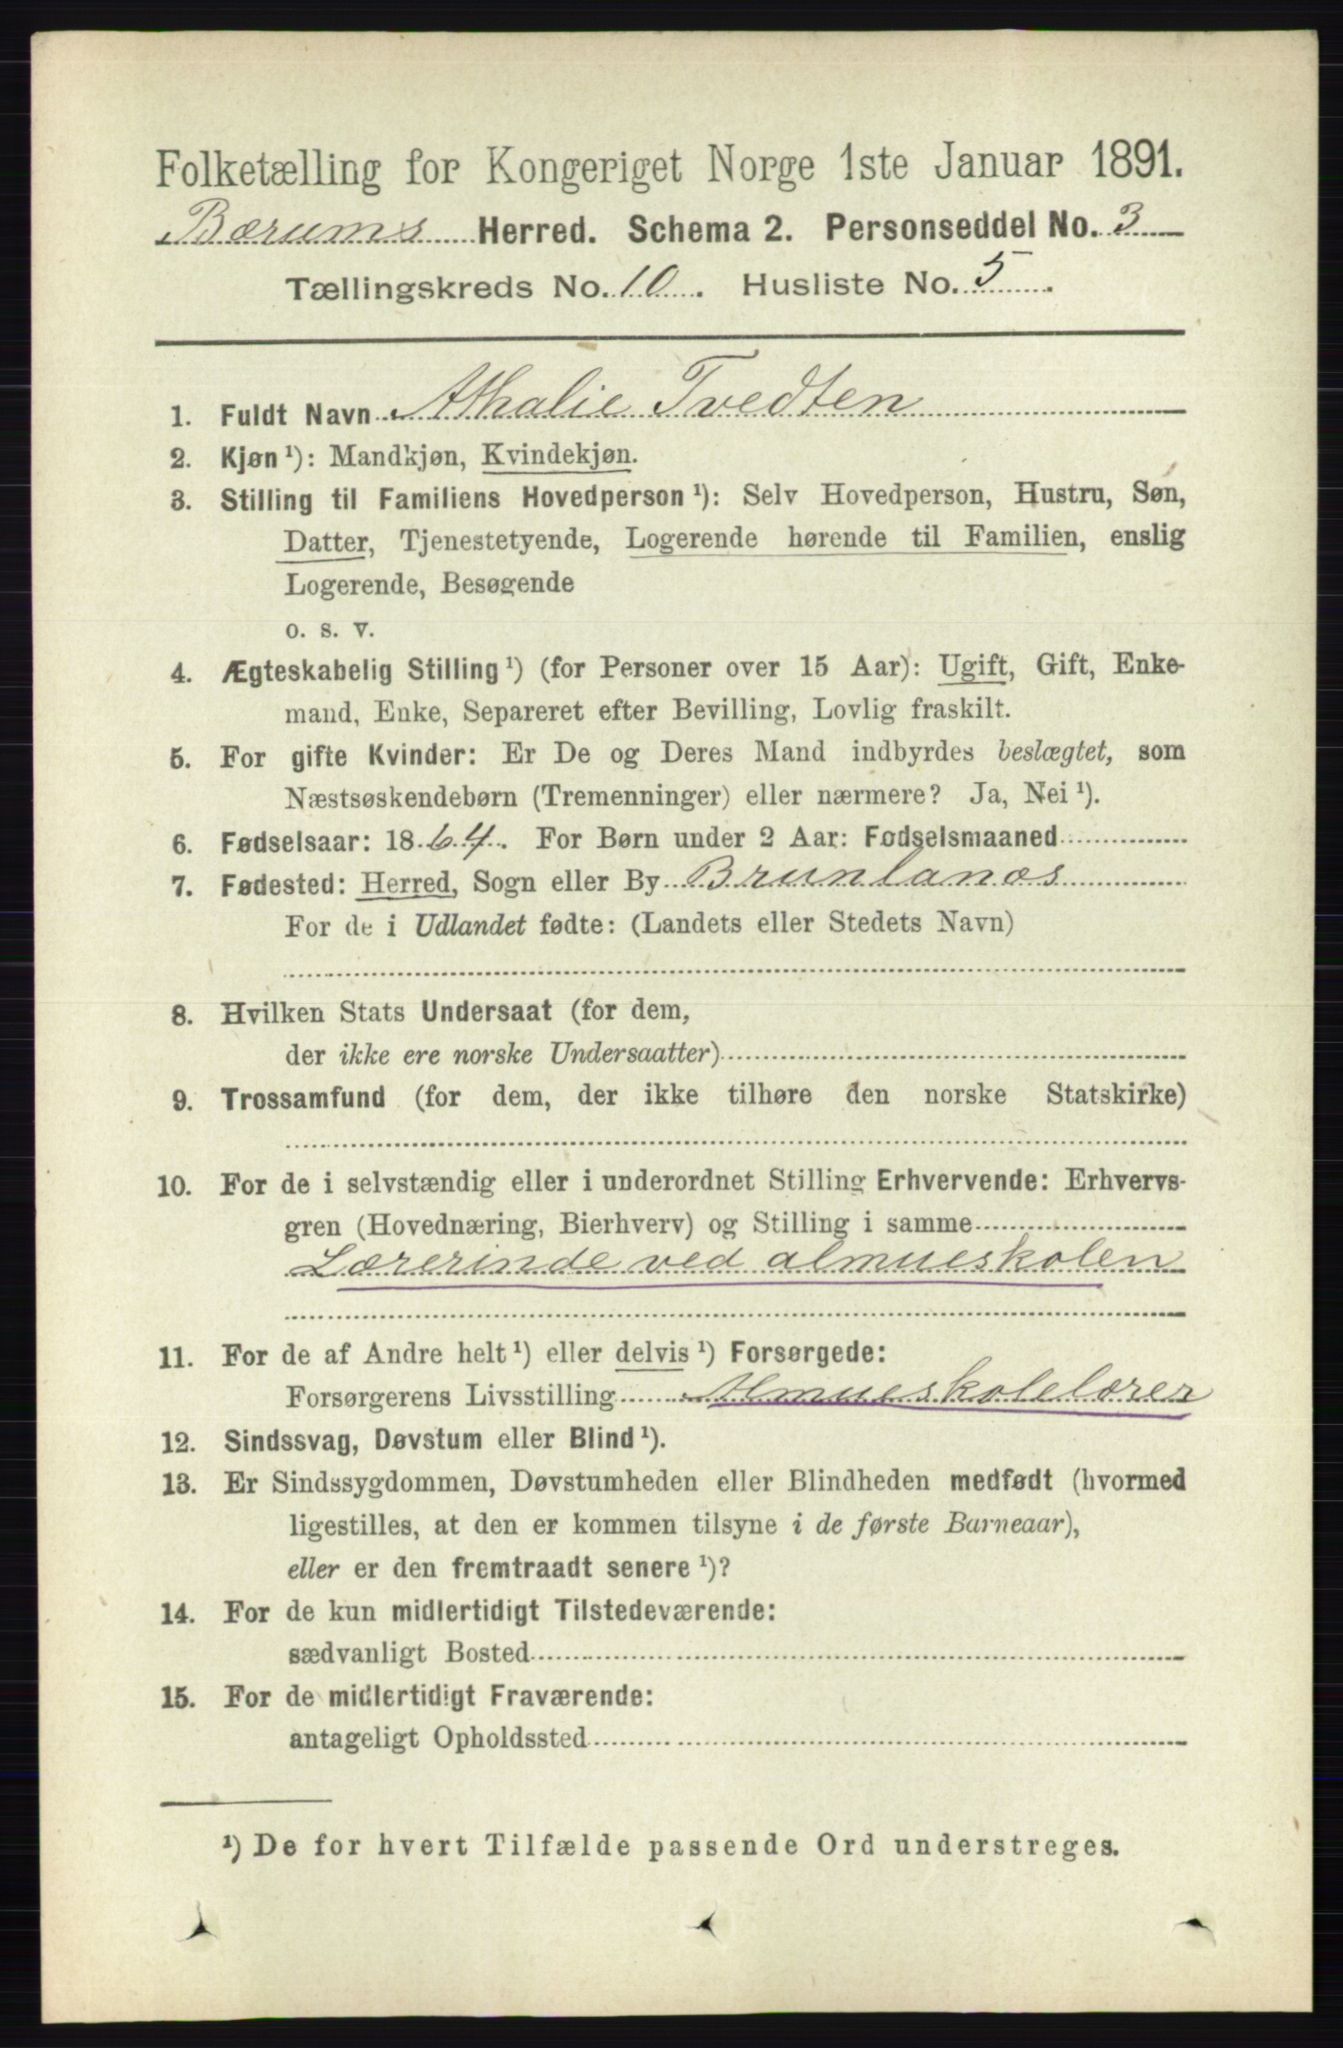 Folketælling for Kongeriget Norge 1ste Januar 1891.
Bærums Herred. Schema 2. Personseddel No. 3
Tællingskreds No. 10. Husliste No. 5.
1. Fuldt Navn Athalie Tvedten
2. Kjøn ¹): Mandkjøn, Kvindekjøn.
3. Stilling til Familiens Hovedperson ¹): Selv Hovedperson, Hustru, Søn,
Datter, Tjenestetyende, Logerende hørende til Familien, enslig
Logerende, Besøgende
o. s. v.
4. Ægteskabelig Stilling ¹) (for Personer over 15 Aar): Ugift, Gift, Enke-
mand, Enke, Separeret efter Bevilling, Lovlig fraskilt.
5. For gifte Kvinder: Er De og Deres Mand indbyrdes beslægtet, som
Næstsøskendebørn (Tremenninger) eller nærmere? Ja, Nei ¹).
6. Fødselsaar: 1864. For Børn under 2 Aar: Fødselsmaaned
7. Fødested: Herred, Sogn eller By Brunlanæs
For de i Udlandet fødte: (Landets eller Stedets Navn)
8. Hvilken Stats Undersaat (for dem,
der ikke ere norske Undersaatter)
9. Trossamfund (for dem, der ikke tilhøre den norske Statskirke)
10. For de i selvstændig eller i underordnet Stilling Erhvervende: Erhvervs-
gren (Hovednæring, Bierhverv) og Stilling i samme
Lærerinde ved almueskolen
11. For de af Andre helt ¹) eller delvis ¹) Forsørgede:
Forsørgerens Livsstilling Almueskolelærer
12. Sindssvag, Døvstum eller Blind ¹).
13. Er Sindssygdommen, Døvstumheden eller Blindheden medfødt (hvormed
ligestilles, at den er kommen tilsyne i de første Barneaar),
eller er den fremtraadt senere ¹)?
14. For de kun midlertidigt Tilstedeværende:
sædvanligt Bosted
15. For de midlertidigt Fraværende:
antageligt Opholdssted
¹) De for hvert Tilfælde passende Ord understreges.